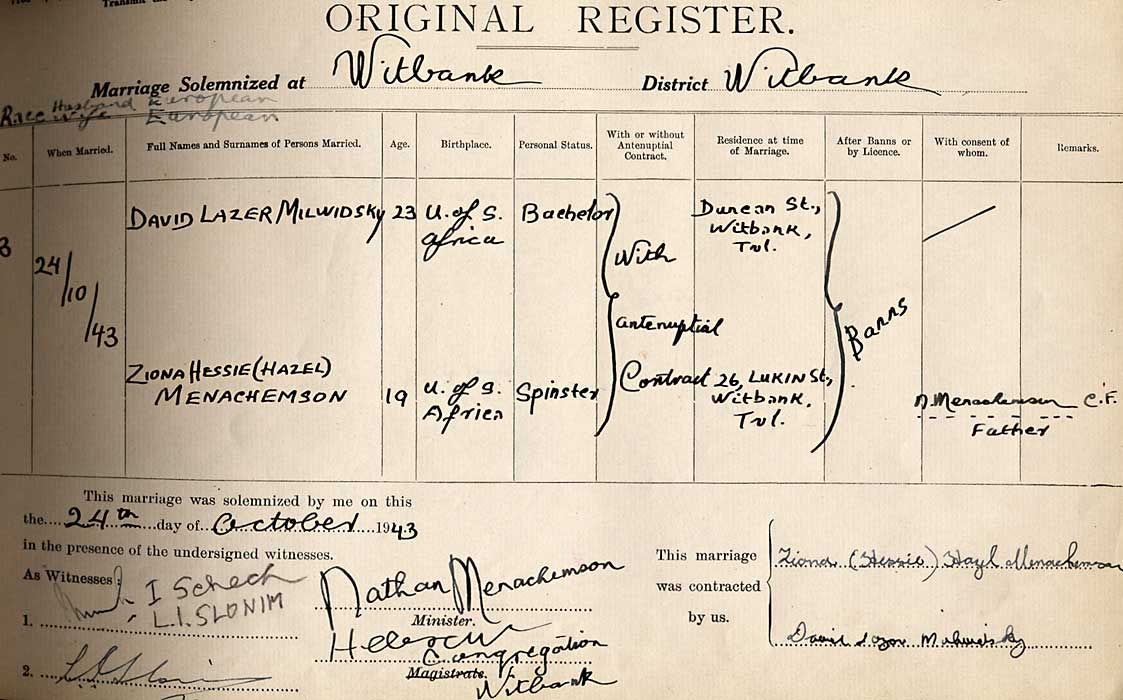 ORIGINAL REGISTER.
Marriage Solemnized at Witbank District Witbank
Race Husband European
Wife European
No. When Married. Full Names and Surnames of Persons Married. Age. Birthplace. Personal Status. With or without Antenuptial Contract. Residence at time of Marriage. After Banns or by Licence. With consent of whom. Remarks.
3
24/10/43
DAVID LAZER MILWIDSKY 23 U. of S. Africa Bachelor Duncan St., Witbank, Tvl.
With Antenuptial Contract
Banns
ZIONA HESSIE (HAZEL) MENACHEMSON 19 U. of S. Africa Spinster 26, LUKIN St., Witbank, Tvl.
N. Menachemson C.F.
Father
This marriage was solemnized by me on this
the....24th...day of...October...1943
in the presence of the undersigned witnesses.
As Witnesses:
I Schech
L.I. SLONIM
1.
2.
Nathan Menachemson
Minister.
Hebrew Congregation
Magistrate.
Witbank
This marriage
was contracted
by us.
Ziona (Hessie) Hazel Menachemson
David Lazer Milwidsky